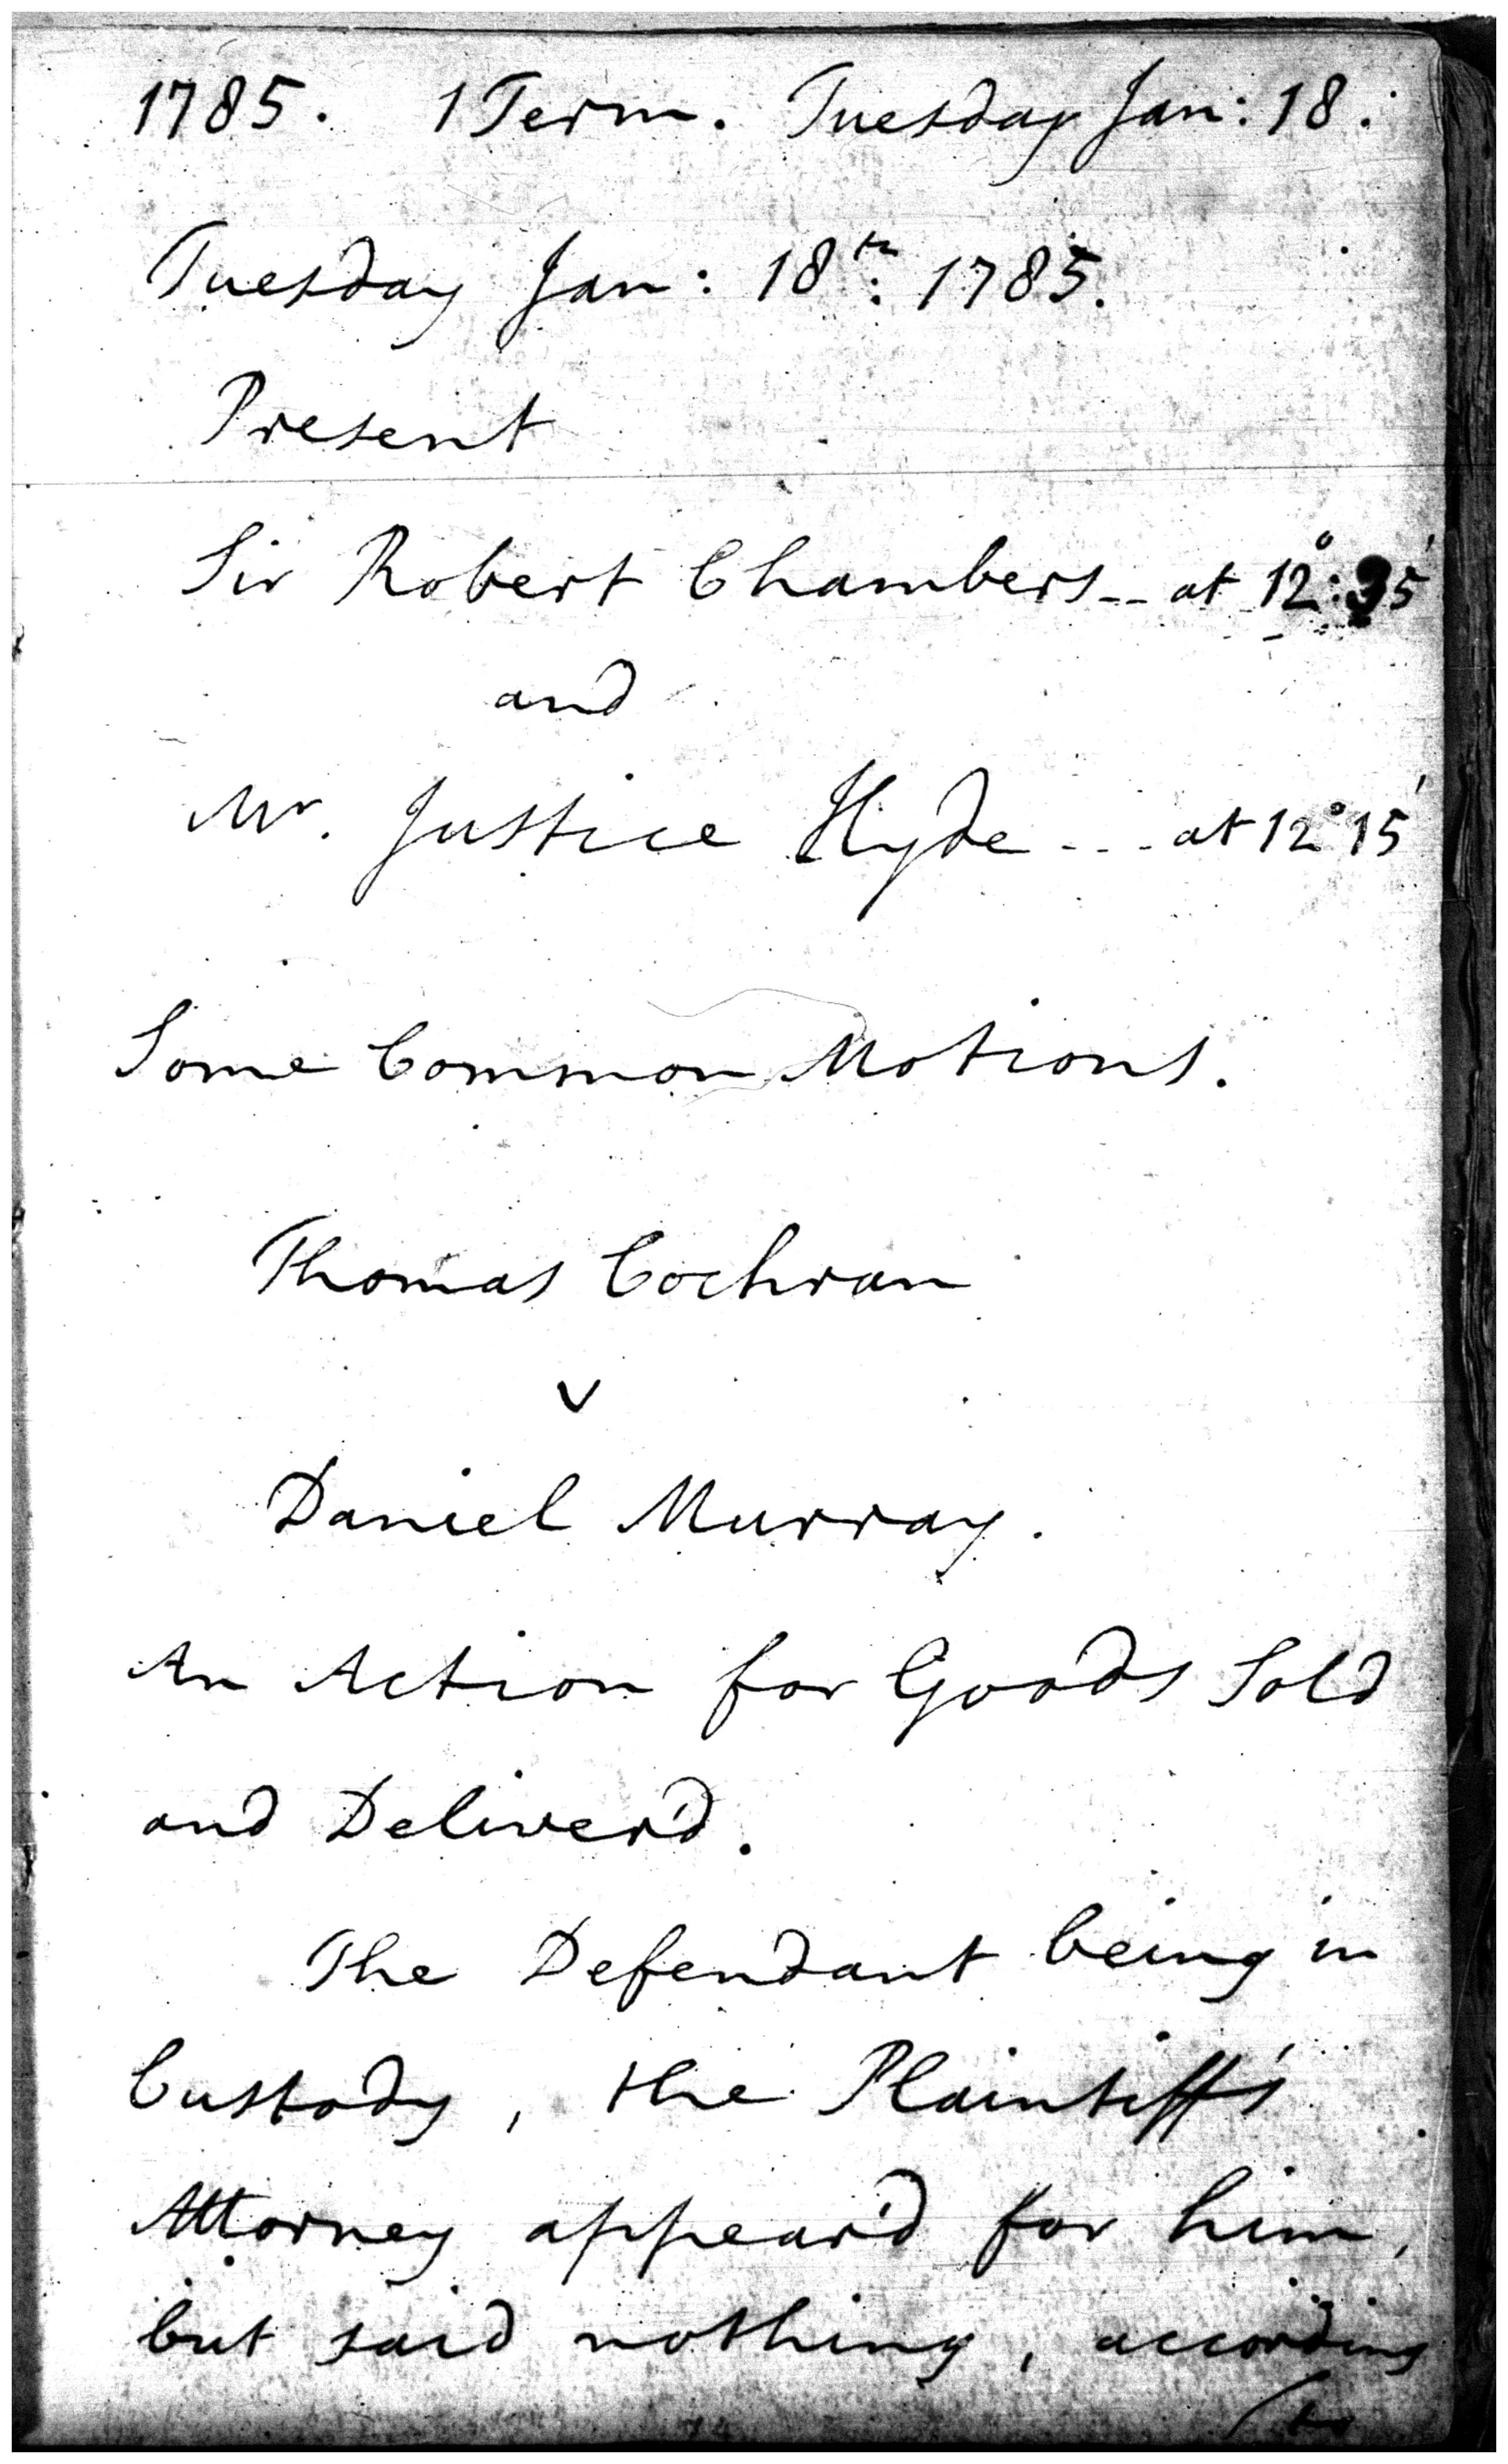 1785. 1 Term. Tuesday Jan: 18.
Tuesday Jan: 18th: 1785.
Present
Sir Robert Chambers -- at 12°:35'
and
Mr. Justice Hyde --- at 12°15'
Some Common Motions.
Thomas Cochran
v
Daniel Murray.
An Action for Goods Sold
and Deliver'd.
The Defendant being in
Custody, the Plaintiff's
Attorney appear'd for him,
but said nothing, according
(to